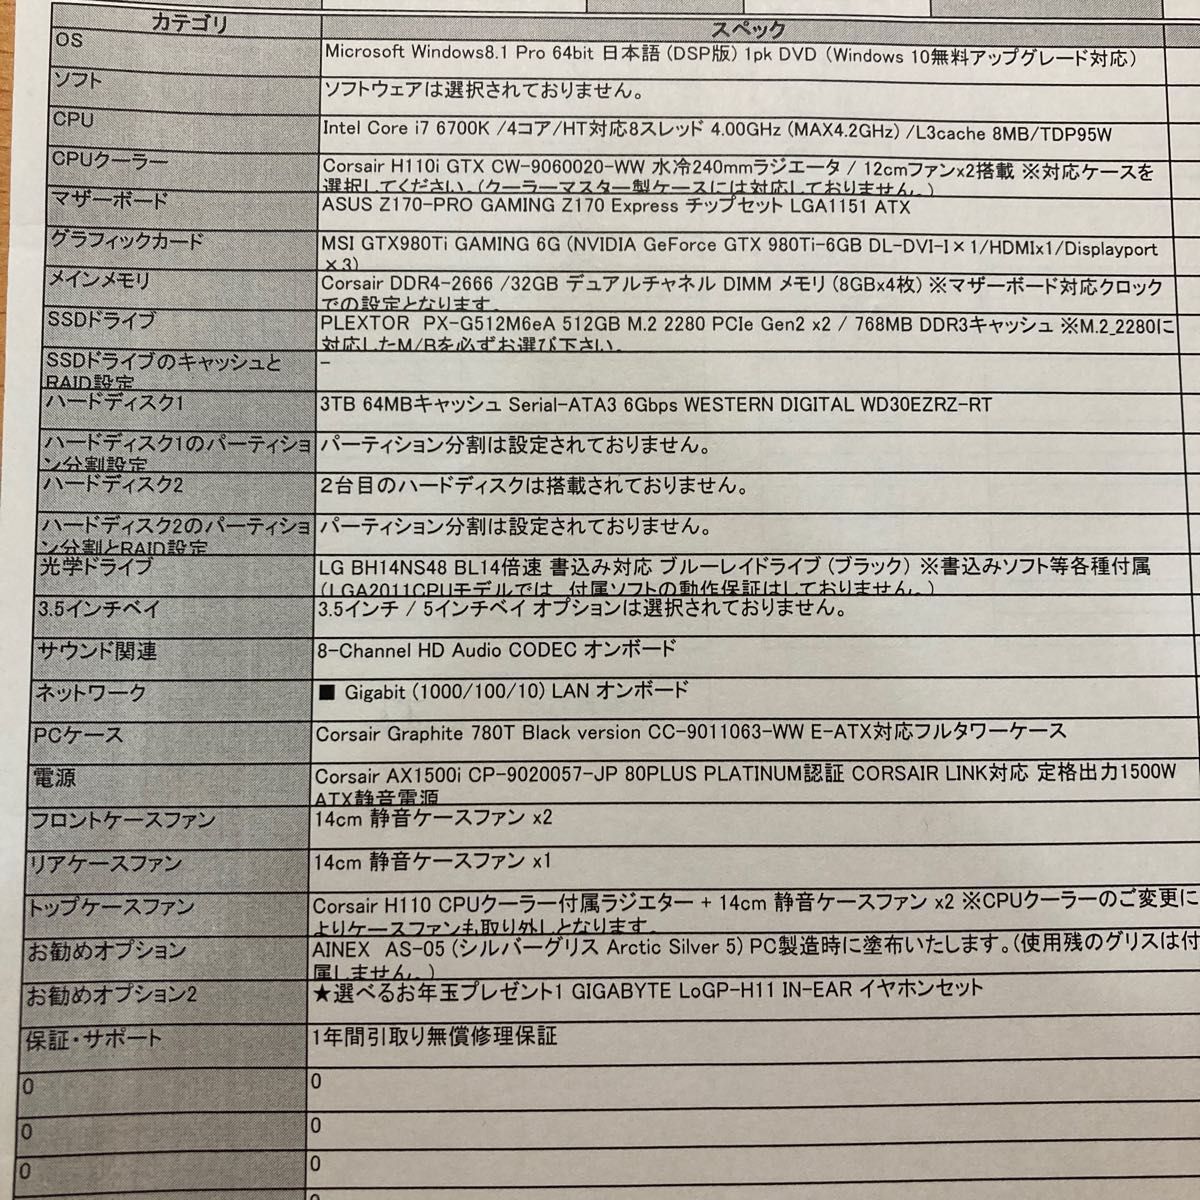 カテゴリ
スペック
OS
Microsoft Windows8.1 Pro 64bit 日本語 (DSP版) 1pk DVD (Windows 10無料アップグレード対応)
ソフト
ソフトウェアは選択されておりません。
CPU
Intel Core i7 6700K /4コア/HT対応8スレッド 4.00GHz (MAX4.2GHz) /L3cache 8MB/TDP95W
CPUクーラー
Corsair H110i GTX CW-9060020-WW 水冷240mmラジエータ / 12cmファンx2搭載 ※対応ケースを
選択してください。(クーラーマスター製ケースには対応しておりません。)
マザーボード
ASUS Z170-PRO GAMING Z170 Express チップセット LGA1151 ATX
グラフィックカード
MSI GTX980Ti GAMING 6G (NVIDIA GeForce GTX 980Ti-6GB DL-DVI-I×1/HDMIx1/Displayport
×3)
メインメモリ
Corsair DDR4-2666 /32GB デュアルチャネル DIMM メモリ (8GBx4枚) ※マザーボード対応クロック
での設定となります。
SSDドライブ
PLEXTOR PX-G512M6eA 512GB M.2 2280 PCIe Gen2 x2 / 768MB DDR3キャッシュ ※M.2_2280に
対応したM/Bを必ずお選び下さい。
SSDドライブのキャッシュと
RAID設定
-
ハードディスク1
3TB 64MBキャッシュ Serial-ATA3 6Gbps WESTERN DIGITAL WD30EZRZ-RT
ハードディスク1のパーティショ
ン分割設定
パーティション分割は設定されておりません。
ハードディスク2
2台目のハードディスクは搭載されておりません。
ハードディスク2のパーティショ
ン分割とRAID設定
パーティション分割は設定されておりません。
光学ドライブ
LG BH14NS48 BL14倍速 書込み対応 ブルーレイドライブ (ブラック) ※書込みソフト等各種付属
(LGA2011CPUモデルでは、付属ソフトの動作保証はしておりません。)
3.5インチベイ
3.5インチ / 5インチベイ オプションは選択されておりません。
サウンド関連
8-Channel HD Audio CODEC オンボード
ネットワーク
■ Gigabit (1000/100/10) LAN オンボード
PCケース
Corsair Graphite 780T Black version CC-9011063-WW E-ATX対応フルタワーケース
電源
Corsair AX1500i CP-9020057-JP 80PLUS PLATINUM認証 CORSAIR LINK対応 定格出力1500W
ATX静音電源
フロントケースファン
14cm 静音ケースファン x2
リアケースファン
14cm 静音ケースファン x1
トップケースファン
Corsair H110 CPUクーラー付属ラジエター + 14cm 静音ケースファン x2 ※CPUクーラーのご変更に
よりケースファンも取り外しとなります。
お勧めオプション
AINEX AS-05 (シルバーグリス Arctic Silver 5) PC製造時に塗布いたします。(使用残のグリスは付
属しません。)
お勧めオプション2
★選べるお年玉プレゼント1 GIGABYTE LoGP-H11 IN-EAR イヤホンセット
保証・サポート
1年間引取り無償修理保証
0
0
0
0
0
0